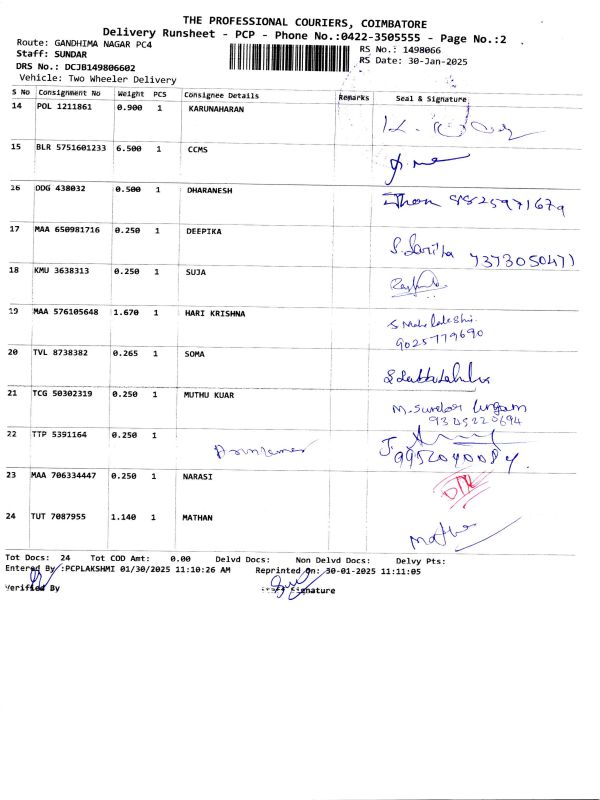 THE PROFESSIONAL COURIERS, COIMBATORE
Delivery Runsheet - PCP - Phone No.:0422-3505555 - Page No.:2
Route: GANDHIMA NAGAR PC4
Staff: SUNDAR
DRS No.: DCJB149806602
Vehicle: Two Wheeler Delivery
RS No.: 1498066
RS Date: 30-Jan-2025
S No Consignment No Weight PCS Consignee Details Remarks Seal & Signature
14 POL 1211861 0.900 1 KARUNAHARAN
15 BLR 5751601233 6.500 1 CCMS
16 DDG 438032 0.500 1 DHARANESH 9825971679
17 MAA 650981716 0.250 1 DEEPIKA S. Saritha 7373050471
18 KMU 3638313 0.250 1 SUJA
19 MAA 576105648 1.670 1 HARI KRISHNA
9025779690
20 TVL 8738382 0.265 1 SOMA
21 TCG 50302319 0.250 1 MUTHU KUAR M. Sundar
9305220694
22 TTP 5391164 0.250 1
9952040084
23 MAA 706334447 0.250 1 NARASI
24 TUT 7087955 1.140 1 MATHAN
Tot Docs: 24 Tot COD Amt: 0.00 Delvd Docs: Non Delvd Docs: Delvy Pts:
Entered By :PCPLAKSHMI 01/30/2025 11:10:26 AM Reprinted On: 30-01-2025 11:11:05
Verified By Staff Signature